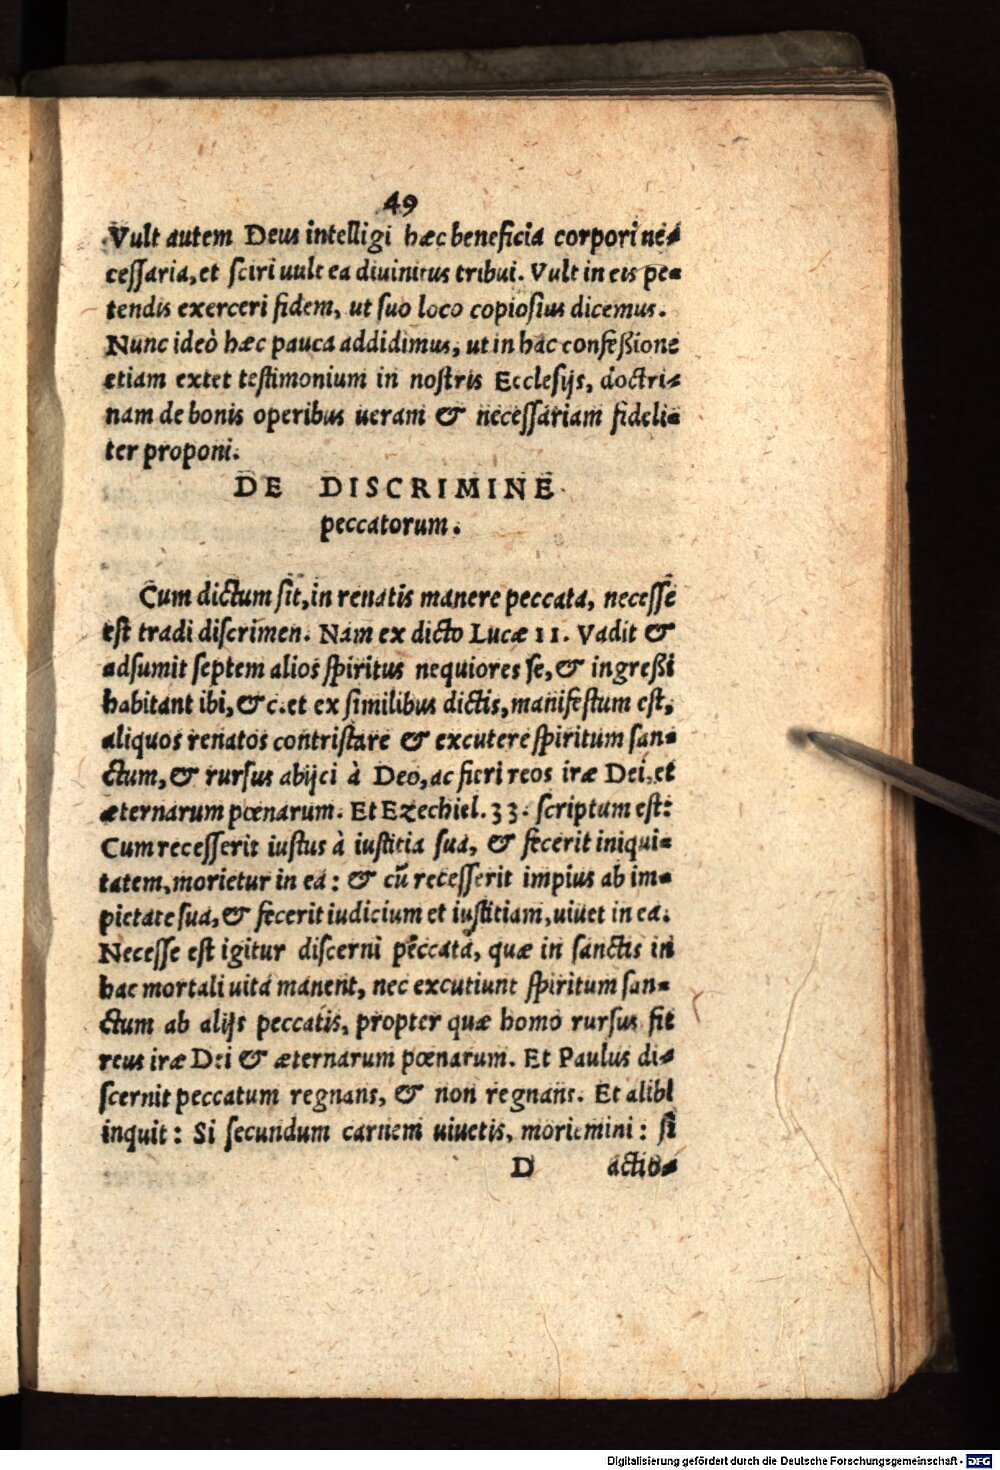 49
Vult autem Deus intelligi hæc beneficia corpori ne-
ceſſaria, et ſciri uult ea diuinitus tribui. Vult in eis pe-
tendis exerceri fidem, ut ſuo loco copioſius dicemus.
Nunc ideò hæc pauca addidimus, ut in hac confeßione
etiam extet teſtimonium in noſtris Eccleſijs, doctri-
nam de bonis operibus ueram & neceſſariam fideli-
ter proponi.
DE DISCRIMINE
peccatorum.
Cum dictum ſit, in renatis manere peccata, neceſſe
eſt tradi diſcrimen. Nam ex dicto Lucæ 11. Vadit &
adſumit ſeptem alios ſpiritus nequiores ſe, & ingreßi
habitant ibi, &c. et ex ſimilibus dictis, manifeſtum eſt,
aliquos renatos contriſtare & excutere ſpiritum ſan-
ctum, & rurſus abijci à Deo, ac fieri reos iræ Dei, et
æternarum pœnarum. Et Ezechiel. 33. ſcriptum eſt:
Cum receſſerit iuſtus à iuſticia ſua, & fecerit iniqui-
tatem, morietur in ea: & cũ receſſerit impius ab im-
pietate ſua, & fecerit iudicium et iuſtitiam, uiuet in ea.
Neceſſe eſt igitur diſcerni peccata, quæ in ſanctis in
hac mortali uita manent, nec excutiunt ſpiritum ſan-
ctum ab alijs peccatis, propter quæ homo rurſus fit
reus iræ Dei & æternarum pœnarum. Et Paulus di-
ſcernit peccatum regnans, & non regnans. Et alibi
inquit: Si ſecundum carnem uiuetis, moriemini: ſi
D actio-
Digitalisierung gefördert durch die Deutsche Forschungsgemeinschaft - DFG